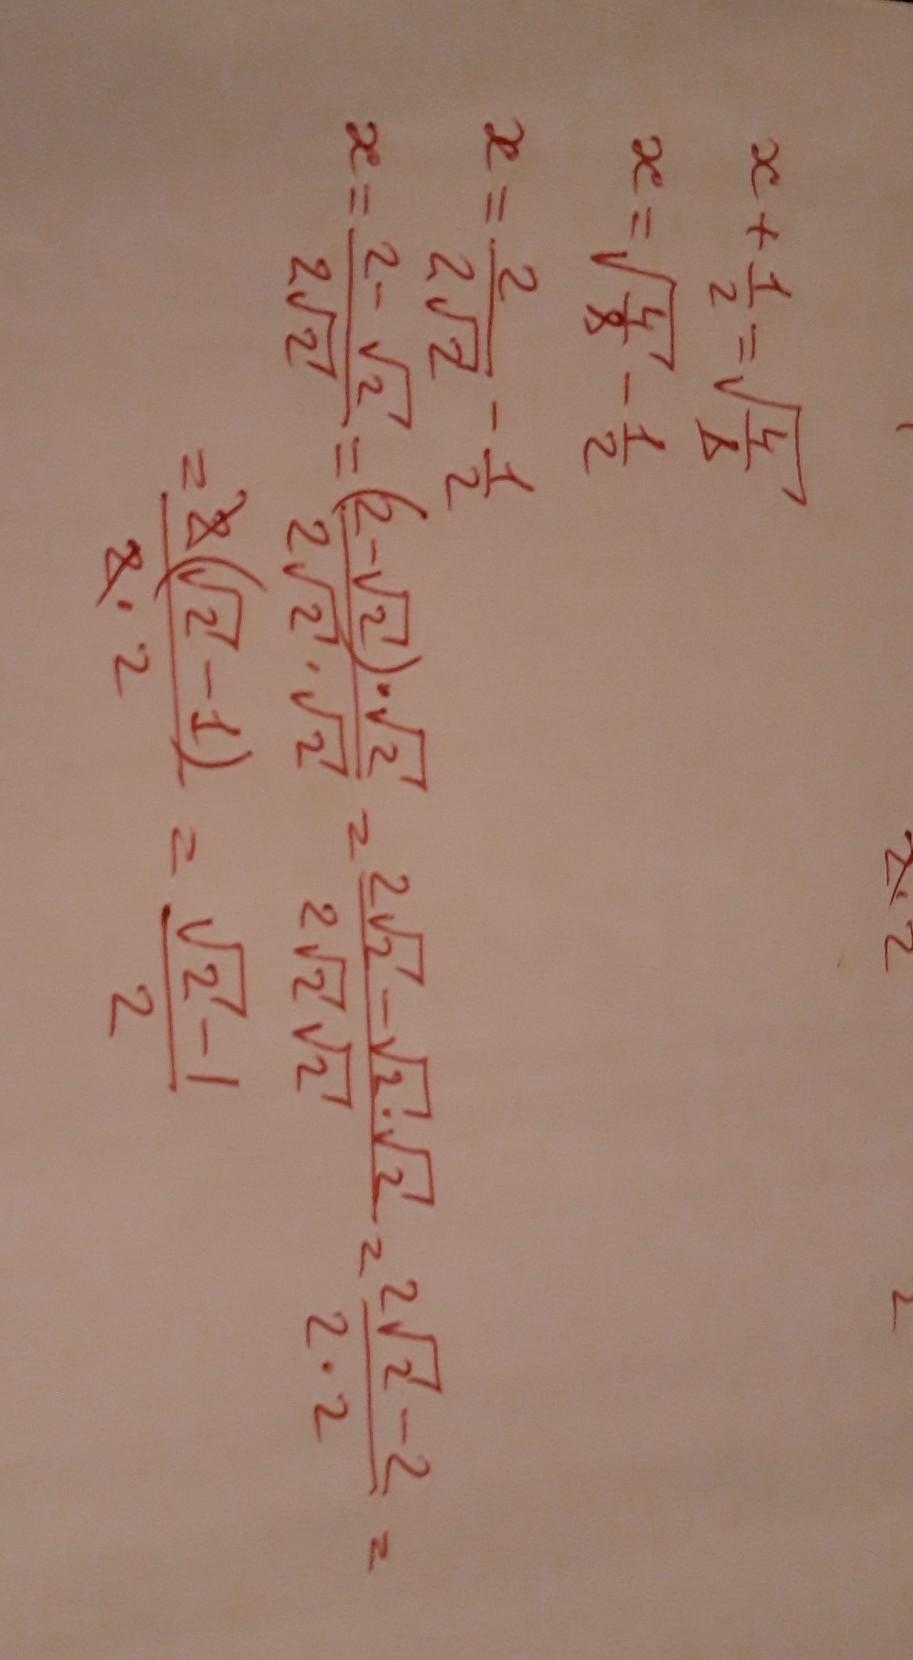 2·2 2
x + 1/2 = √(4/8)
x = √(4/8) - 1/2
x = 2/(2√2) - 1/2
x = (2 - √2)/(2√2) = ((2 - √2)·√2)/(2√2·√2) = (2√2 - √2·√2)/(2√2√2) = (2√2 - 2)/(2·2) =
= 2(√2 - 1)/(2·2) = (√2 - 1)/2